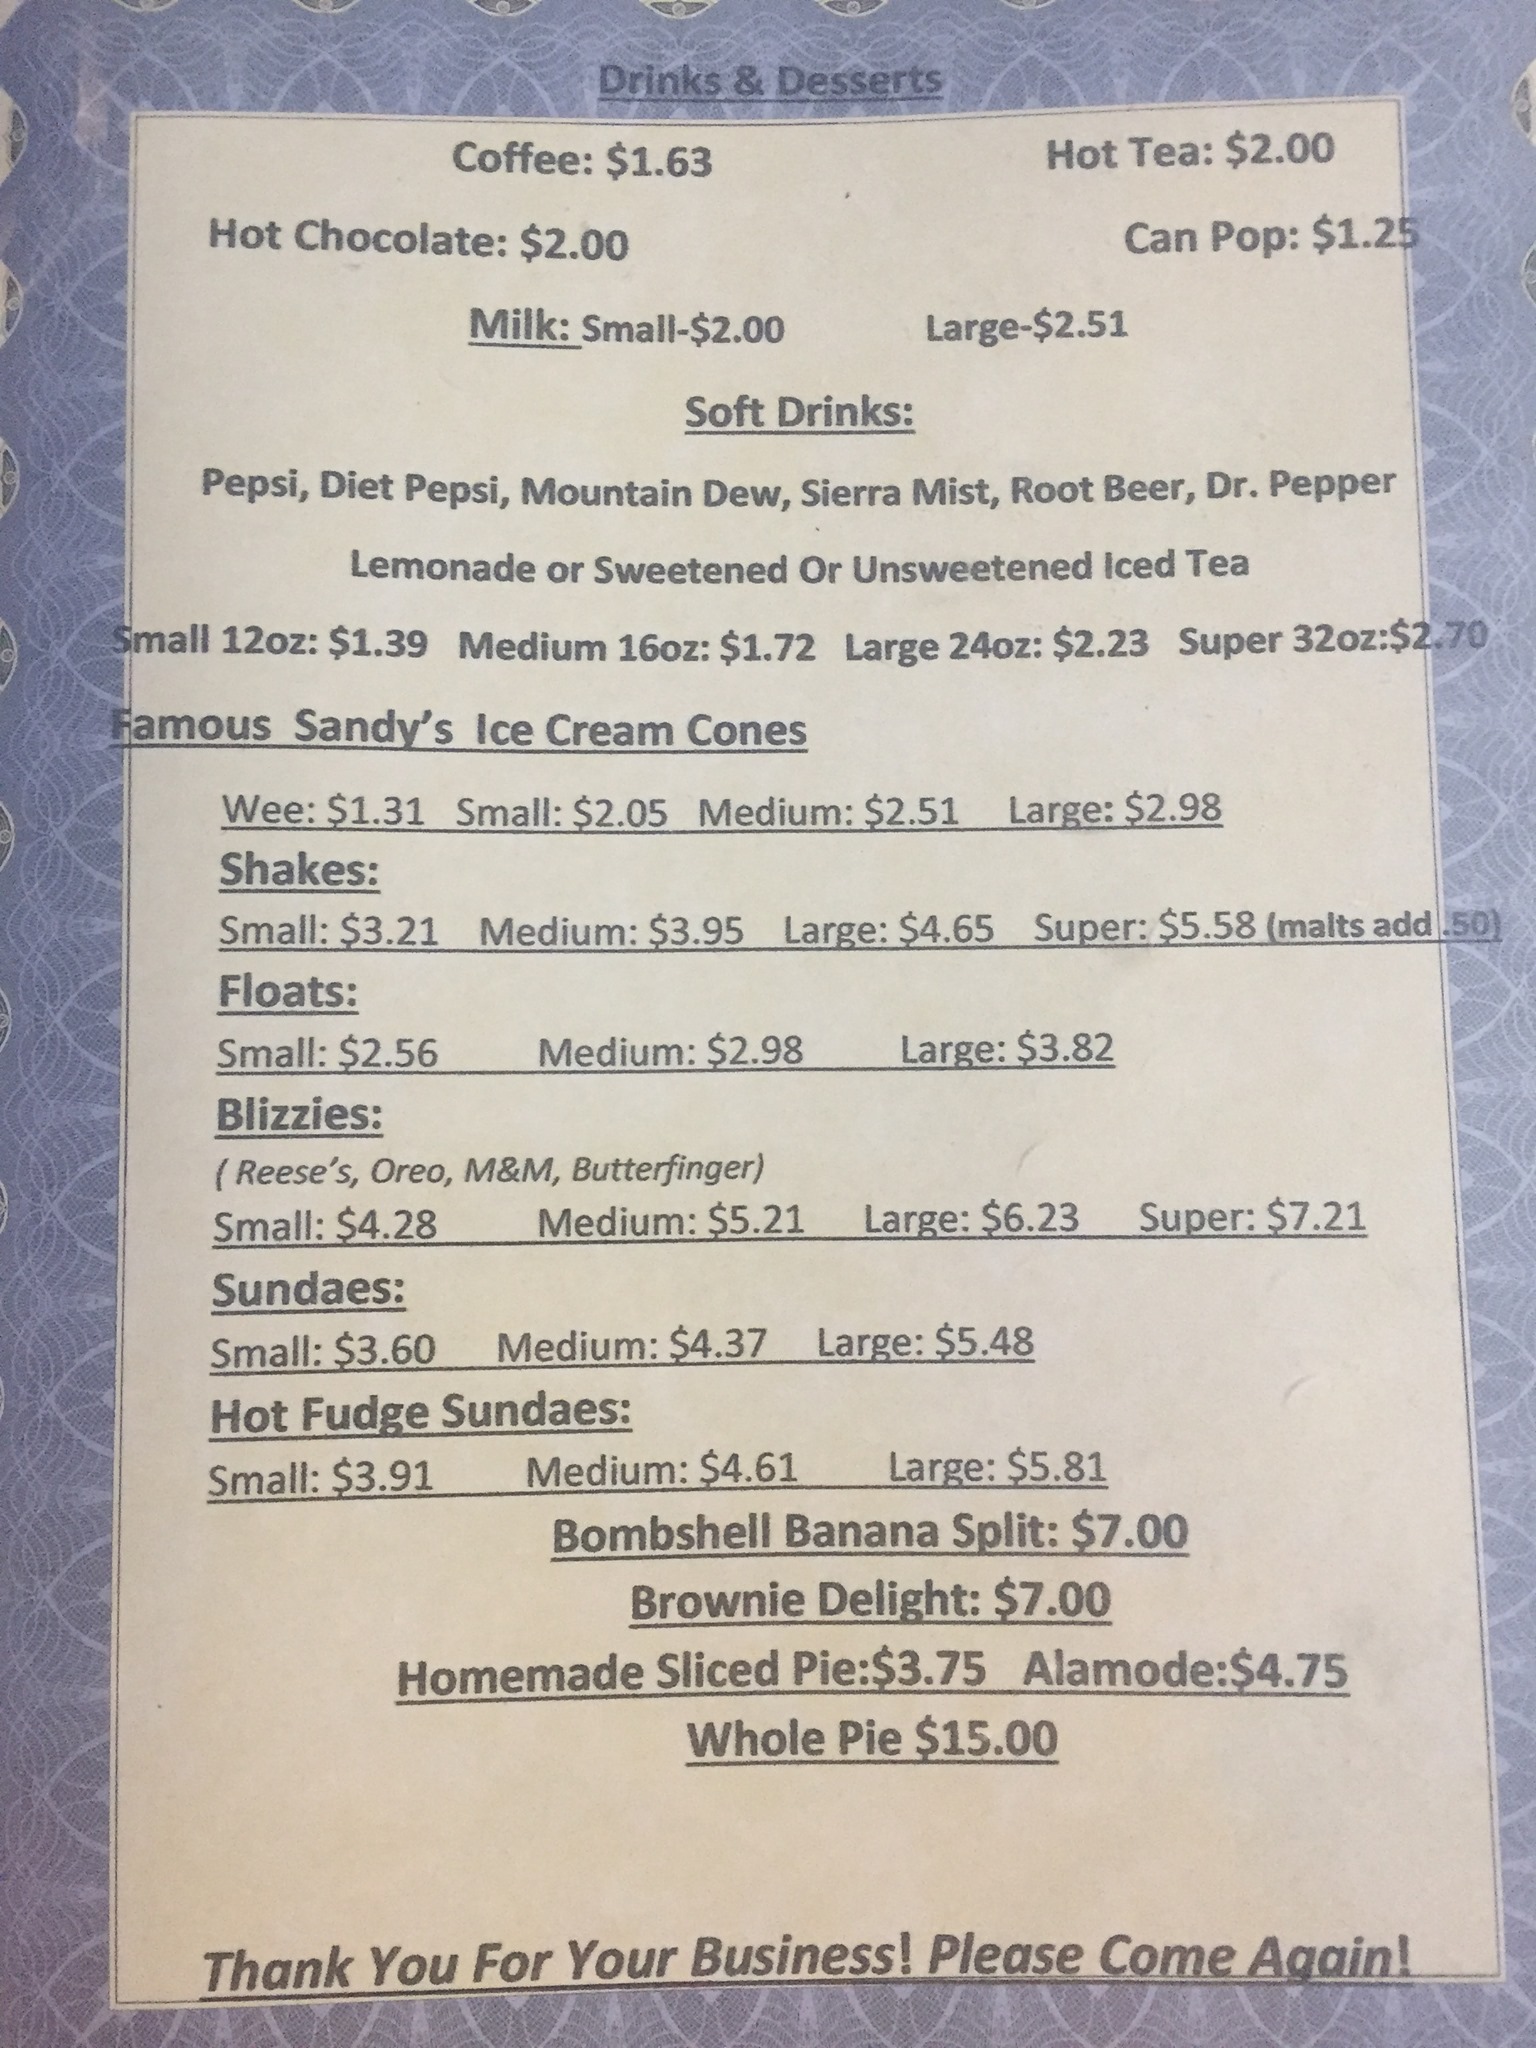 Drinks & Desserts
Coffee: $1.63 Hot Tea: $2.00
Hot Chocolate: $2.00 Can Pop: $1.25
Milk: Small-$2.00 Large-$2.51
Soft Drinks:
Pepsi, Diet Pepsi, Mountain Dew, Sierra Mist, Root Beer, Dr. Pepper
Lemonade or Sweetened Or Unsweetened Iced Tea
Small 12oz: $1.39 Medium 16oz: $1.72 Large 24oz: $2.23 Super 32oz:$2.70
Famous Sandy's Ice Cream Cones
Wee: $1.31 Small: $2.05 Medium: $2.51 Large: $2.98
Shakes:
Small: $3.21 Medium: $3.95 Large: $4.65 Super: $5.58 (malts add .50)
Floats:
Small: $2.56 Medium: $2.98 Large: $3.82
Blizzies:
( Reese's, Oreo, M&M, Butterfinger)
Small: $4.28 Medium: $5.21 Large: $6.23 Super: $7.21
Sundaes:
Small: $3.60 Medium: $4.37 Large: $5.48
Hot Fudge Sundaes:
Small: $3.91 Medium: $4.61 Large: $5.81
Bombshell Banana Split: $7.00
Brownie Delight: $7.00
Homemade Sliced Pie:$3.75 Alamode:$4.75
Whole Pie $15.00
Thank You For Your Business! Please Come Again!